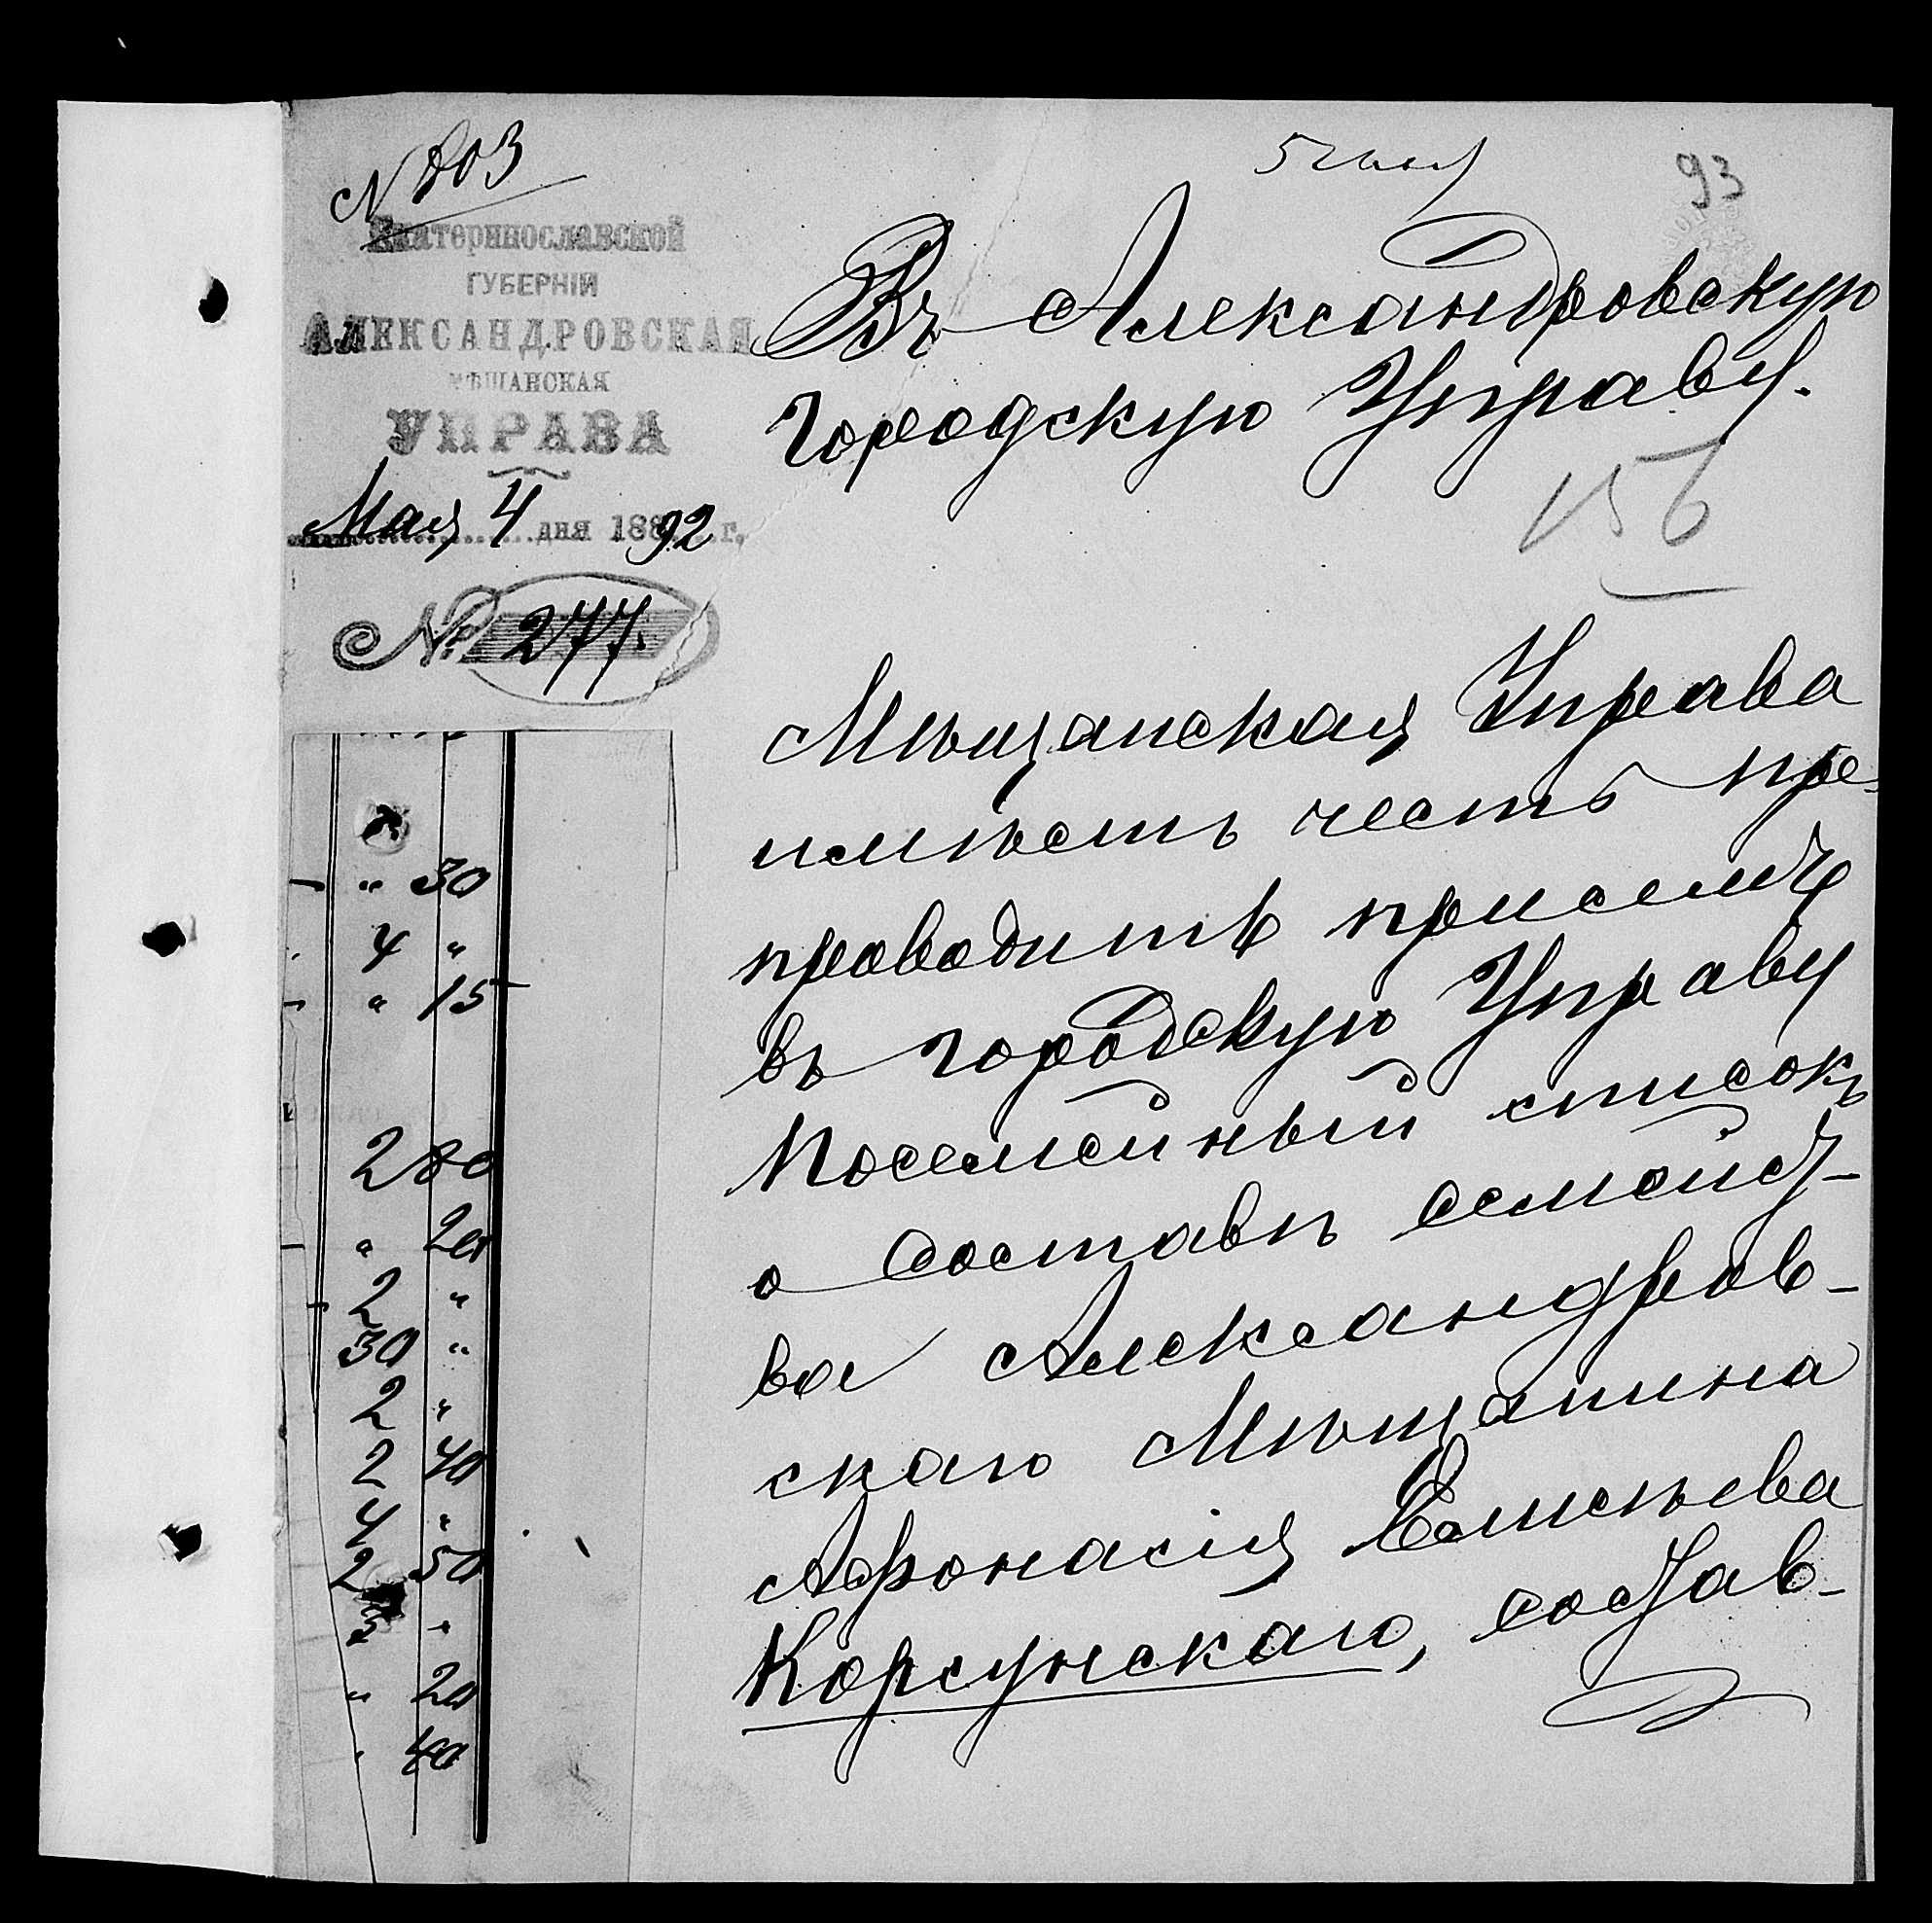 N 203
93
Екатеринославской
ГУБЕРНІИ
АЛЕКСАНДРОВСКАЯ
МѢЩАНСКАЯ
УПРАВА
Мая 4 дня 1892 г.
№ 277.
Въ Александровскую
Городскую Управу.
156
Мѣщанская Управа
имѣетъ честь пре-
проводить при семъ
въ городскую Управу
посемейный списокъ
о составѣ семейст-
ва Александров-
скаго Мѣщанина
Афонасія Елисѣева
Корсунскаго, состав-
" 30
4 "
" 15
2 80
" 20
2 "
30 "
2 "
2 40
4 "
2 50
3 "
" 20
" 40